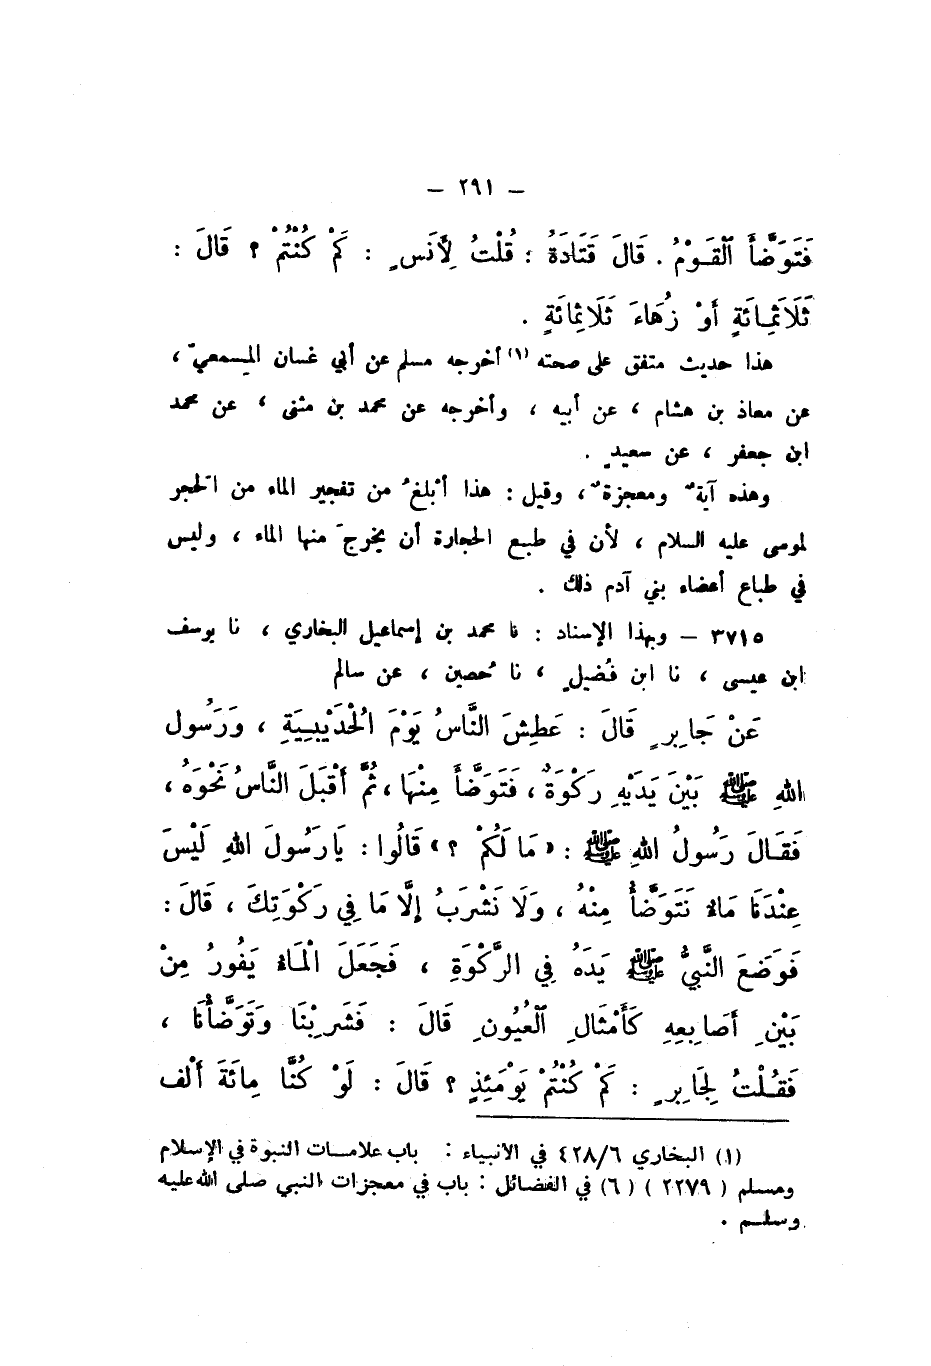 – ٢٩١ –
فَتَوَضَّأَ ٱلْقَوْمُ . قَالَ قَتَادَةُ : قُلْتُ لِأَنَسٍ : كَمْ كُنْتُمْ ؟ قَالَ :
ثَلَاثَمِائَةٍ أَوْ زُهَاءَ ثَلَاثِمَائَةٍ .
هذا حديث متفق على صحته (١) أخرجه مسلم عن أبي غسان المِسمعيّ ،
عن معاذ بن هشام ، عن أبيه ، وأخرجه عن محمد بن مثنى ، عن محمد
ابن جعفر ، عن سعيدٍ .
وهذه آيةٌ ومعجزةٌ ، وقيل : هذا أبلغُ من تفجير الماء من الحجر
لموسى عليه السلام ، لأن في طبع الحجارة أن يخرجَ منها الماء ، وليس
في طباع أعضاء بني آدم ذلك .
٣٧١٥ – وبهذا الإسناد : نا محمد بن إسماعيل البخاري ، نا يوسف
ابن عيسى ، نا ابن فُضيلٍ ، نا حُصين ، عن سالم
عَنْ جَابِرٍ قَالَ : عَطِشَ النَّاسُ يَوْمَ الْحُدَيْبِيَةِ ، وَرَسُول
اللهِ ﷺ بَيْنَ يَدَيْهِ رَكْوَةٌ ، فَتَوَضَّأَ مِنْهَا ، ثُمَّ أَقْبَلَ النَّاسُ نَحْوَهُ ،
فَقَالَ رَسُولُ اللهِ ﷺ : « مَا لَكُمْ ؟ » قَالُوا : يَارَسُولَ اللهِ لَيْسَ
عِنْدَنَا مَاءٌ نَتَوَضَّأُ مِنْهُ ، وَلَا نَشْرَبُ إِلَّا مَا فِي رَكْوَتِكَ ، قَالَ :
فَوَضَعَ النَّبِيُّ ﷺ يَدَهُ فِي الرَّكْوَةِ ، فَجَعَلَ الْمَاءُ يَفُورُ مِنْ
بَيْنِ أَصَابِعِهِ كَأَمْثَالِ ٱلْعُيُونِ قَالَ : فَشَرِبْنَا وَتَوَضَّأْنَا ،
فَقُلْتُ لِجَابِرٍ : كَمْ كُنْتُمْ يَوْمَئِذٍ ؟ قَالَ : لَوْ كُنَّا مِائَةَ أَلْف
(١) البخاري ٤٢٨/٦ في الأنبياء : باب علامات النبوة في الإسلام
ومسلم ( ٢٢٧٩ ) (٦) في الفضائل : باب في معجزات النبي صلى الله عليه
وسلم .